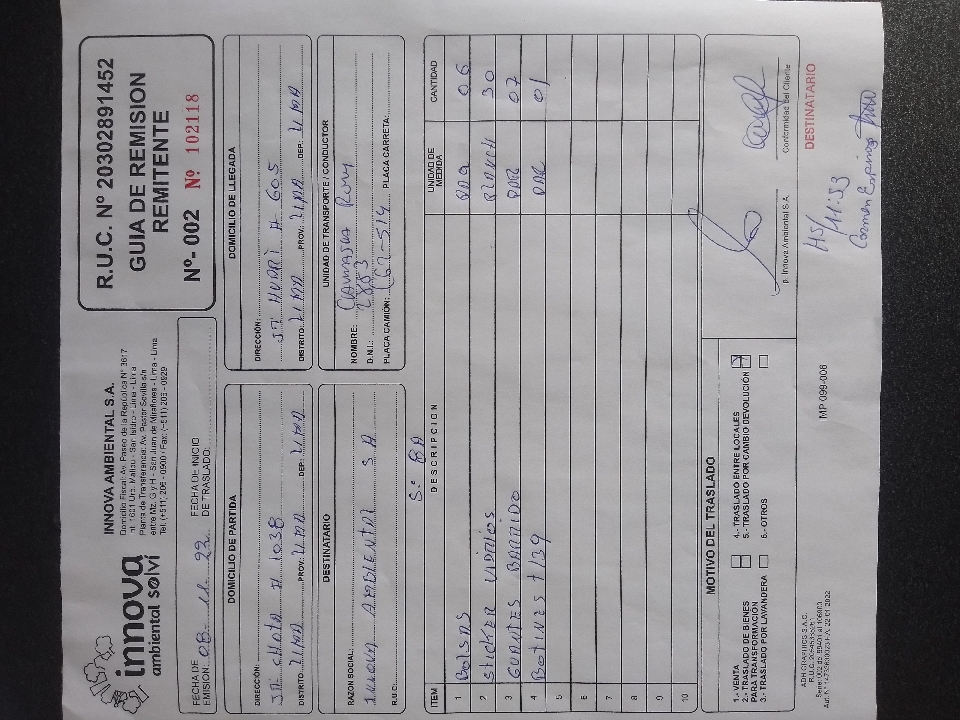 innova
ambiental sølvi
INNOVA AMBIENTAL S.A.
Domicilio Fiscal: Av. Paseo de la República N° 3617
Int. 1601 Urb. Matlau - San Isidro - Lima - Lima
Planta de Transferencia: Av. Pastor Sevilla s/n
entre Mz. G y H - San Juan de Miraflores - Lima - Lima
R.U.C. Nº 20302891452
GUIA DE REMISION
REMITENTE
Nº- 002 Nº 102118
FECHA DE EMISION: 08 11 22
FECHA DE INICIO DE TRASLADO:
DOMICILIO DE PARTIDA
DIRECCIÓN: JR. CHOTA # 1038
DISTRITO: LIMA PROV.: LIMA DEP. LIMA
DOMICILIO DE LLEGADA
DIRECCIÓN: JR. HUARI # 605
DISTRITO: LIMA PROV.: LIMA DEP. LIMA
DESTINATARIO
RAZON SOCIAL: INNOVA AMBIENTAL S A
R.U.C.
UNIDAD DE TRANSPORTE / CONDUCTOR
NOMBRE: Romy
D.N.I.:
PLACA CAMIÓN: PLACA CARRETA:
S.º BA
ITEM DESCRIPCION UNIDAD DE MEDIDA CANTIDAD
1 Bolsas PAQ 06
2 Sticker Vidrios PLANCH 30
3 GUANTES BARRIDO PAR 07
4 Botines T/39 PAR 01
5
6
7
8
9
10
MOTIVO DEL TRASLADO
1.- VENTA
2.- TRASLADO DE BIENES
PARA TRANSFORMACIÓN
3.- TRASLADO POR LAVANDERA
4.- TRASLADO ENTRE LOCALES
5.- TRASLADO POR CAMBIO DEVOLUCIÓN
6.- OTROS
p. Innova Ambiental S.A.
Conformidad del Cliente
DESTINATARIO
11:53
Carmen Espinoza
ADH GRAPHICS S.A.C.
MP 099-008